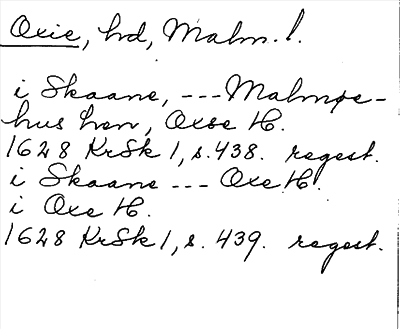 Oxie, hd, Malm. l.
i Skaane, --- Malmøe-
hus Len, Oxse H.
1628 KrSk 1, s. 438. regest.
i Skaane --- Oxe H.
i Oxe H.
1628 KrSk 1, s. 439. regest.